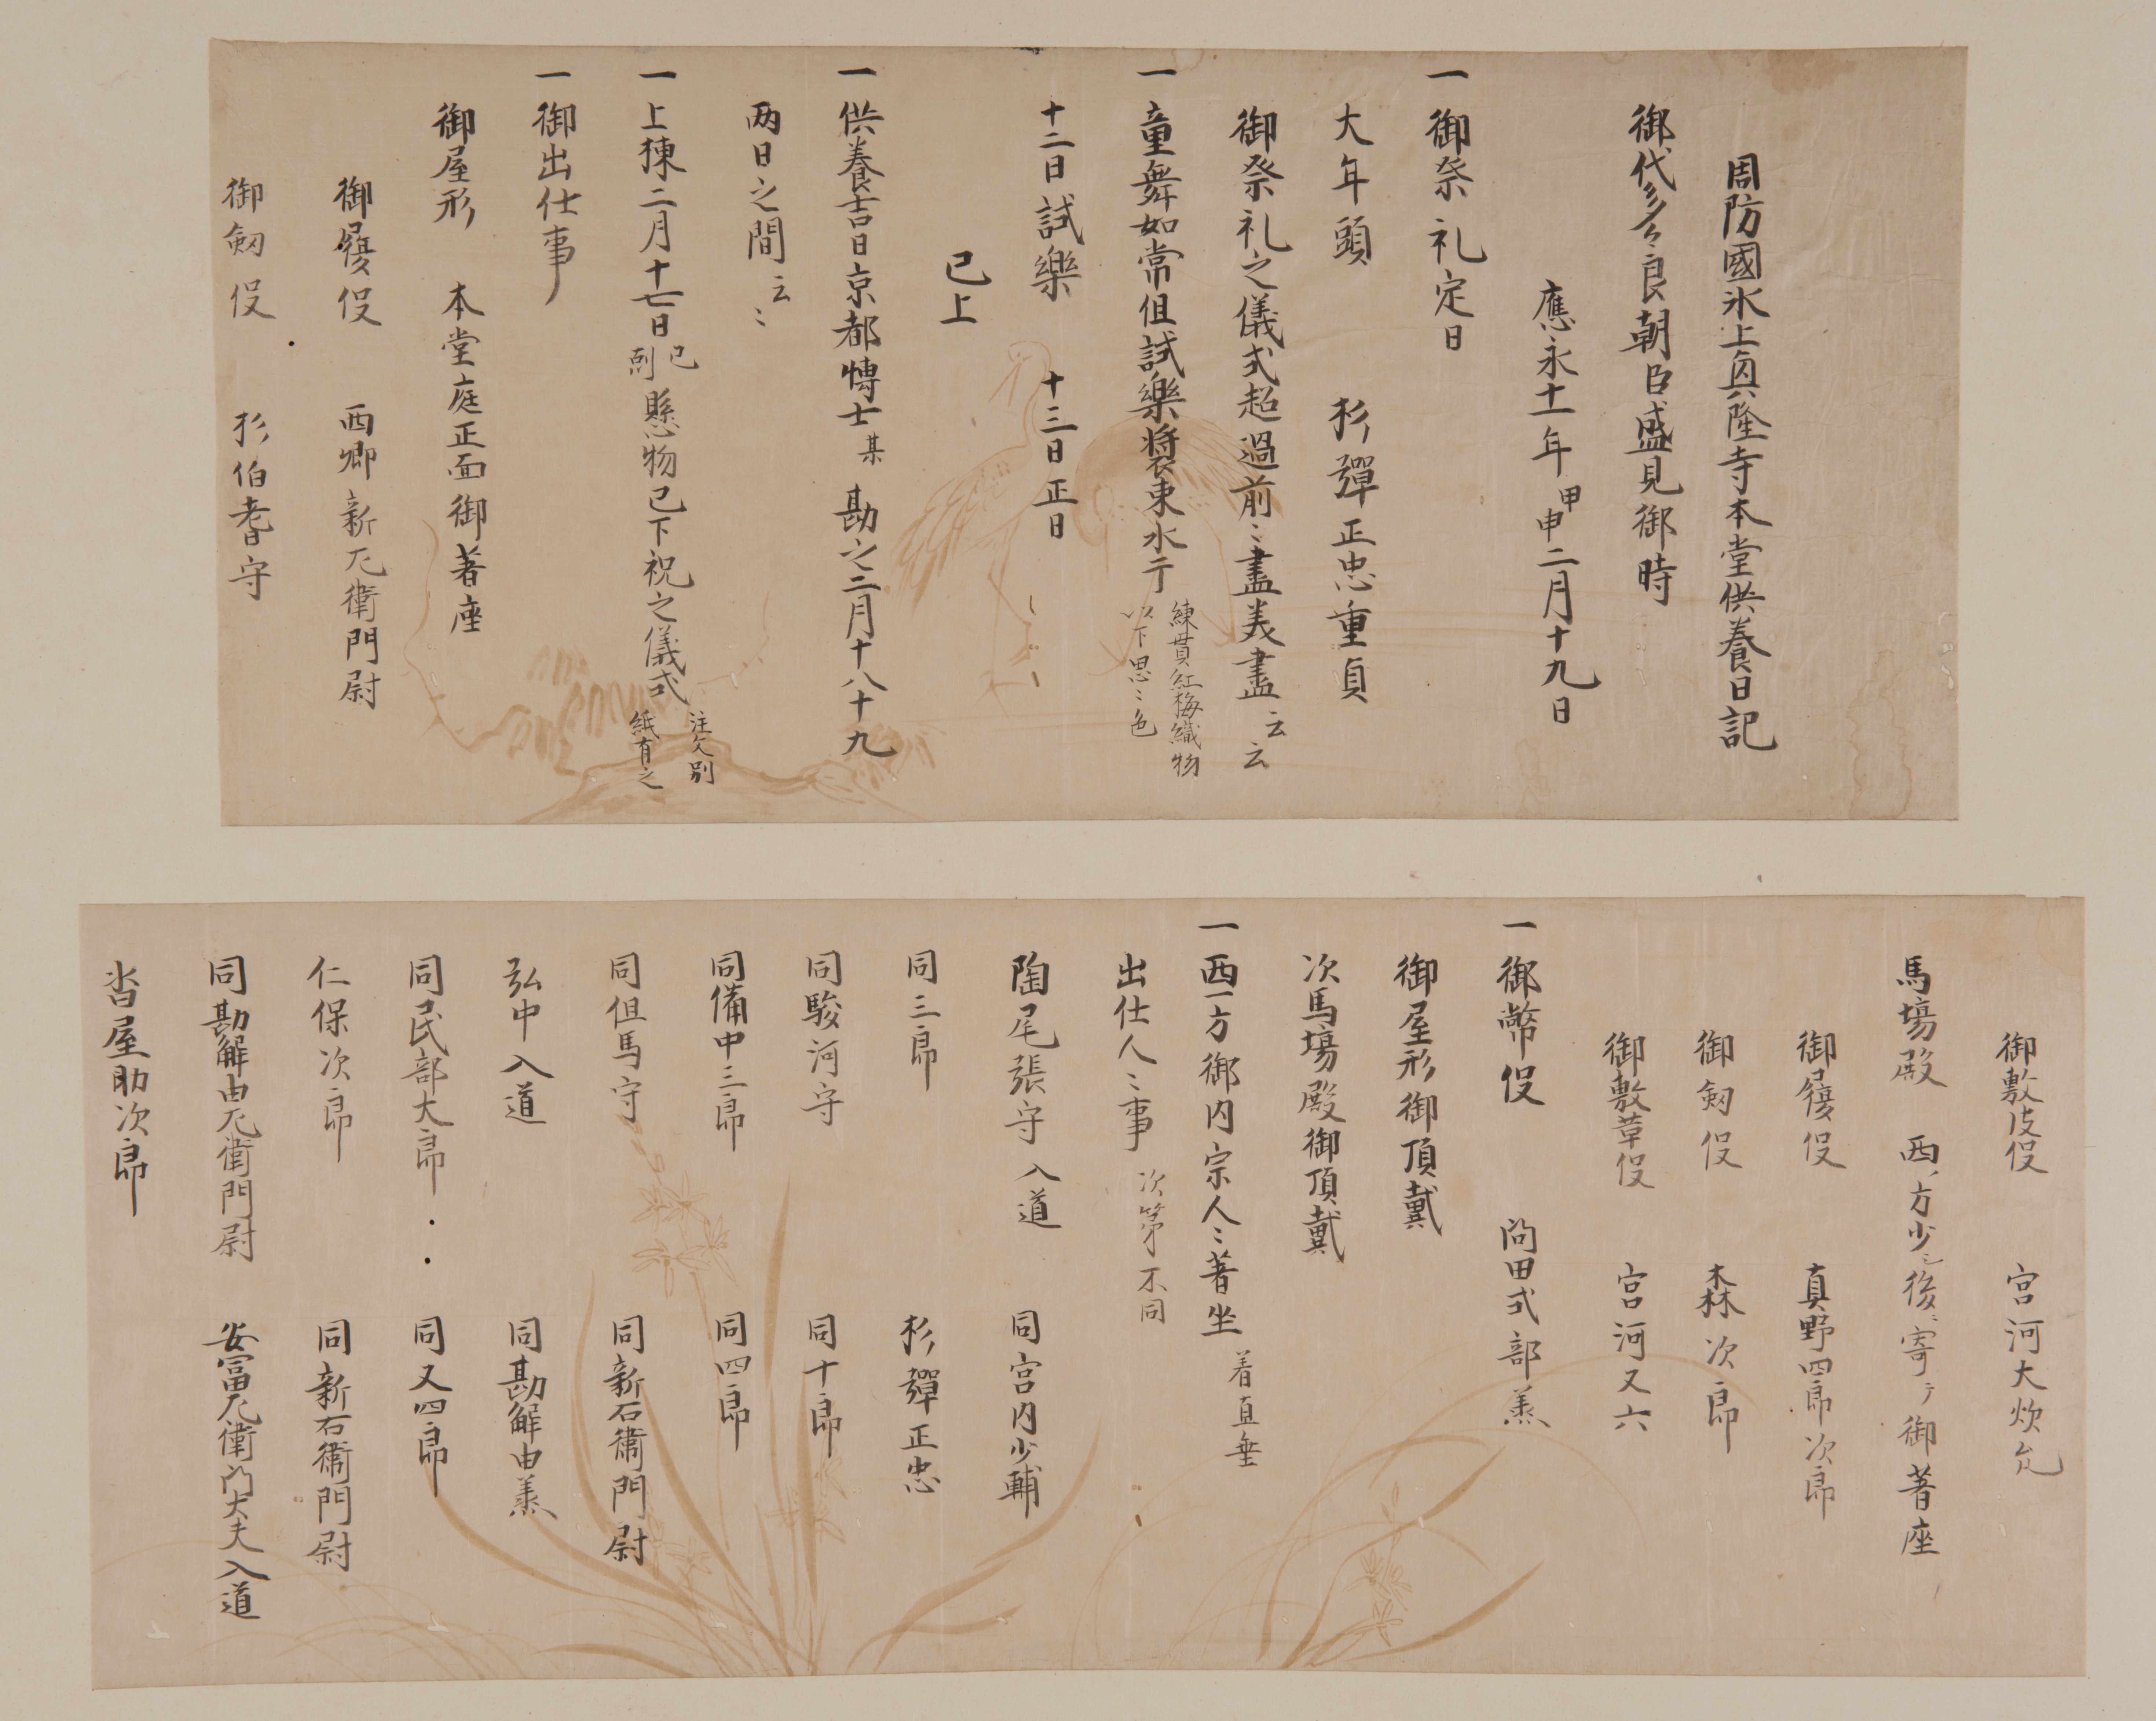 周防國氷上真隆寺本堂供養日記
御代多々良朝臣盛見御時
應永十一年甲申二月十九日
一御祭礼定日
大年頭 杉彈正忠重貞
御祭礼之儀式超過前〻盡美盡云云
一童舞如常但試樂裝束水干練貫紅梅織物以下思〻色
十二日試樂 十三日正日
已上
一供養吉日京都博士某勘之二月十八十九
两日之間云〻
一上棟二月十七日巳剋懸物已下祝之儀式注文別紙有之
一御出仕事
御屋形 本堂庭正面御著座
御履役 西郷新左衛門尉
御剱役 杉伯耆守
御敷皮役 宮河大炊允
馬場殿 西ノ方少シ後ニ寄テ御著座
御履役 真野四郎次郎
御剱役 森次郎
御敷草役 宮河又六
一御幣役 問田式部丞
御屋形御頂戴
次馬場殿御頂戴
一西一方御内宗人〻著坐着直垂
出仕人〻事次第不同
陶尾張守入道 同宮内少輔
同三郎 杉彈正忠
同駿河守 同十郎
同備中三郎 同四郎
同但馬守 同新右衛門尉
弘中入道 同勘解由丞
同民部大郎 同又四郎
仁保次郎 同新右衛門尉
同勘解由左衛門尉 安冨左衛門大夫入道
沓屋助次郎